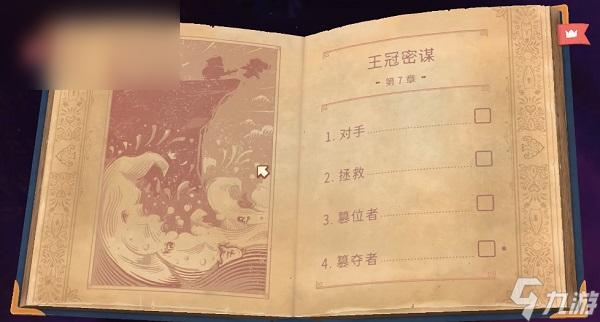 王冠密谋
- 第7章 -
1. 对手
2. 拯救
3. 篡位者
4. 篡夺者
九游